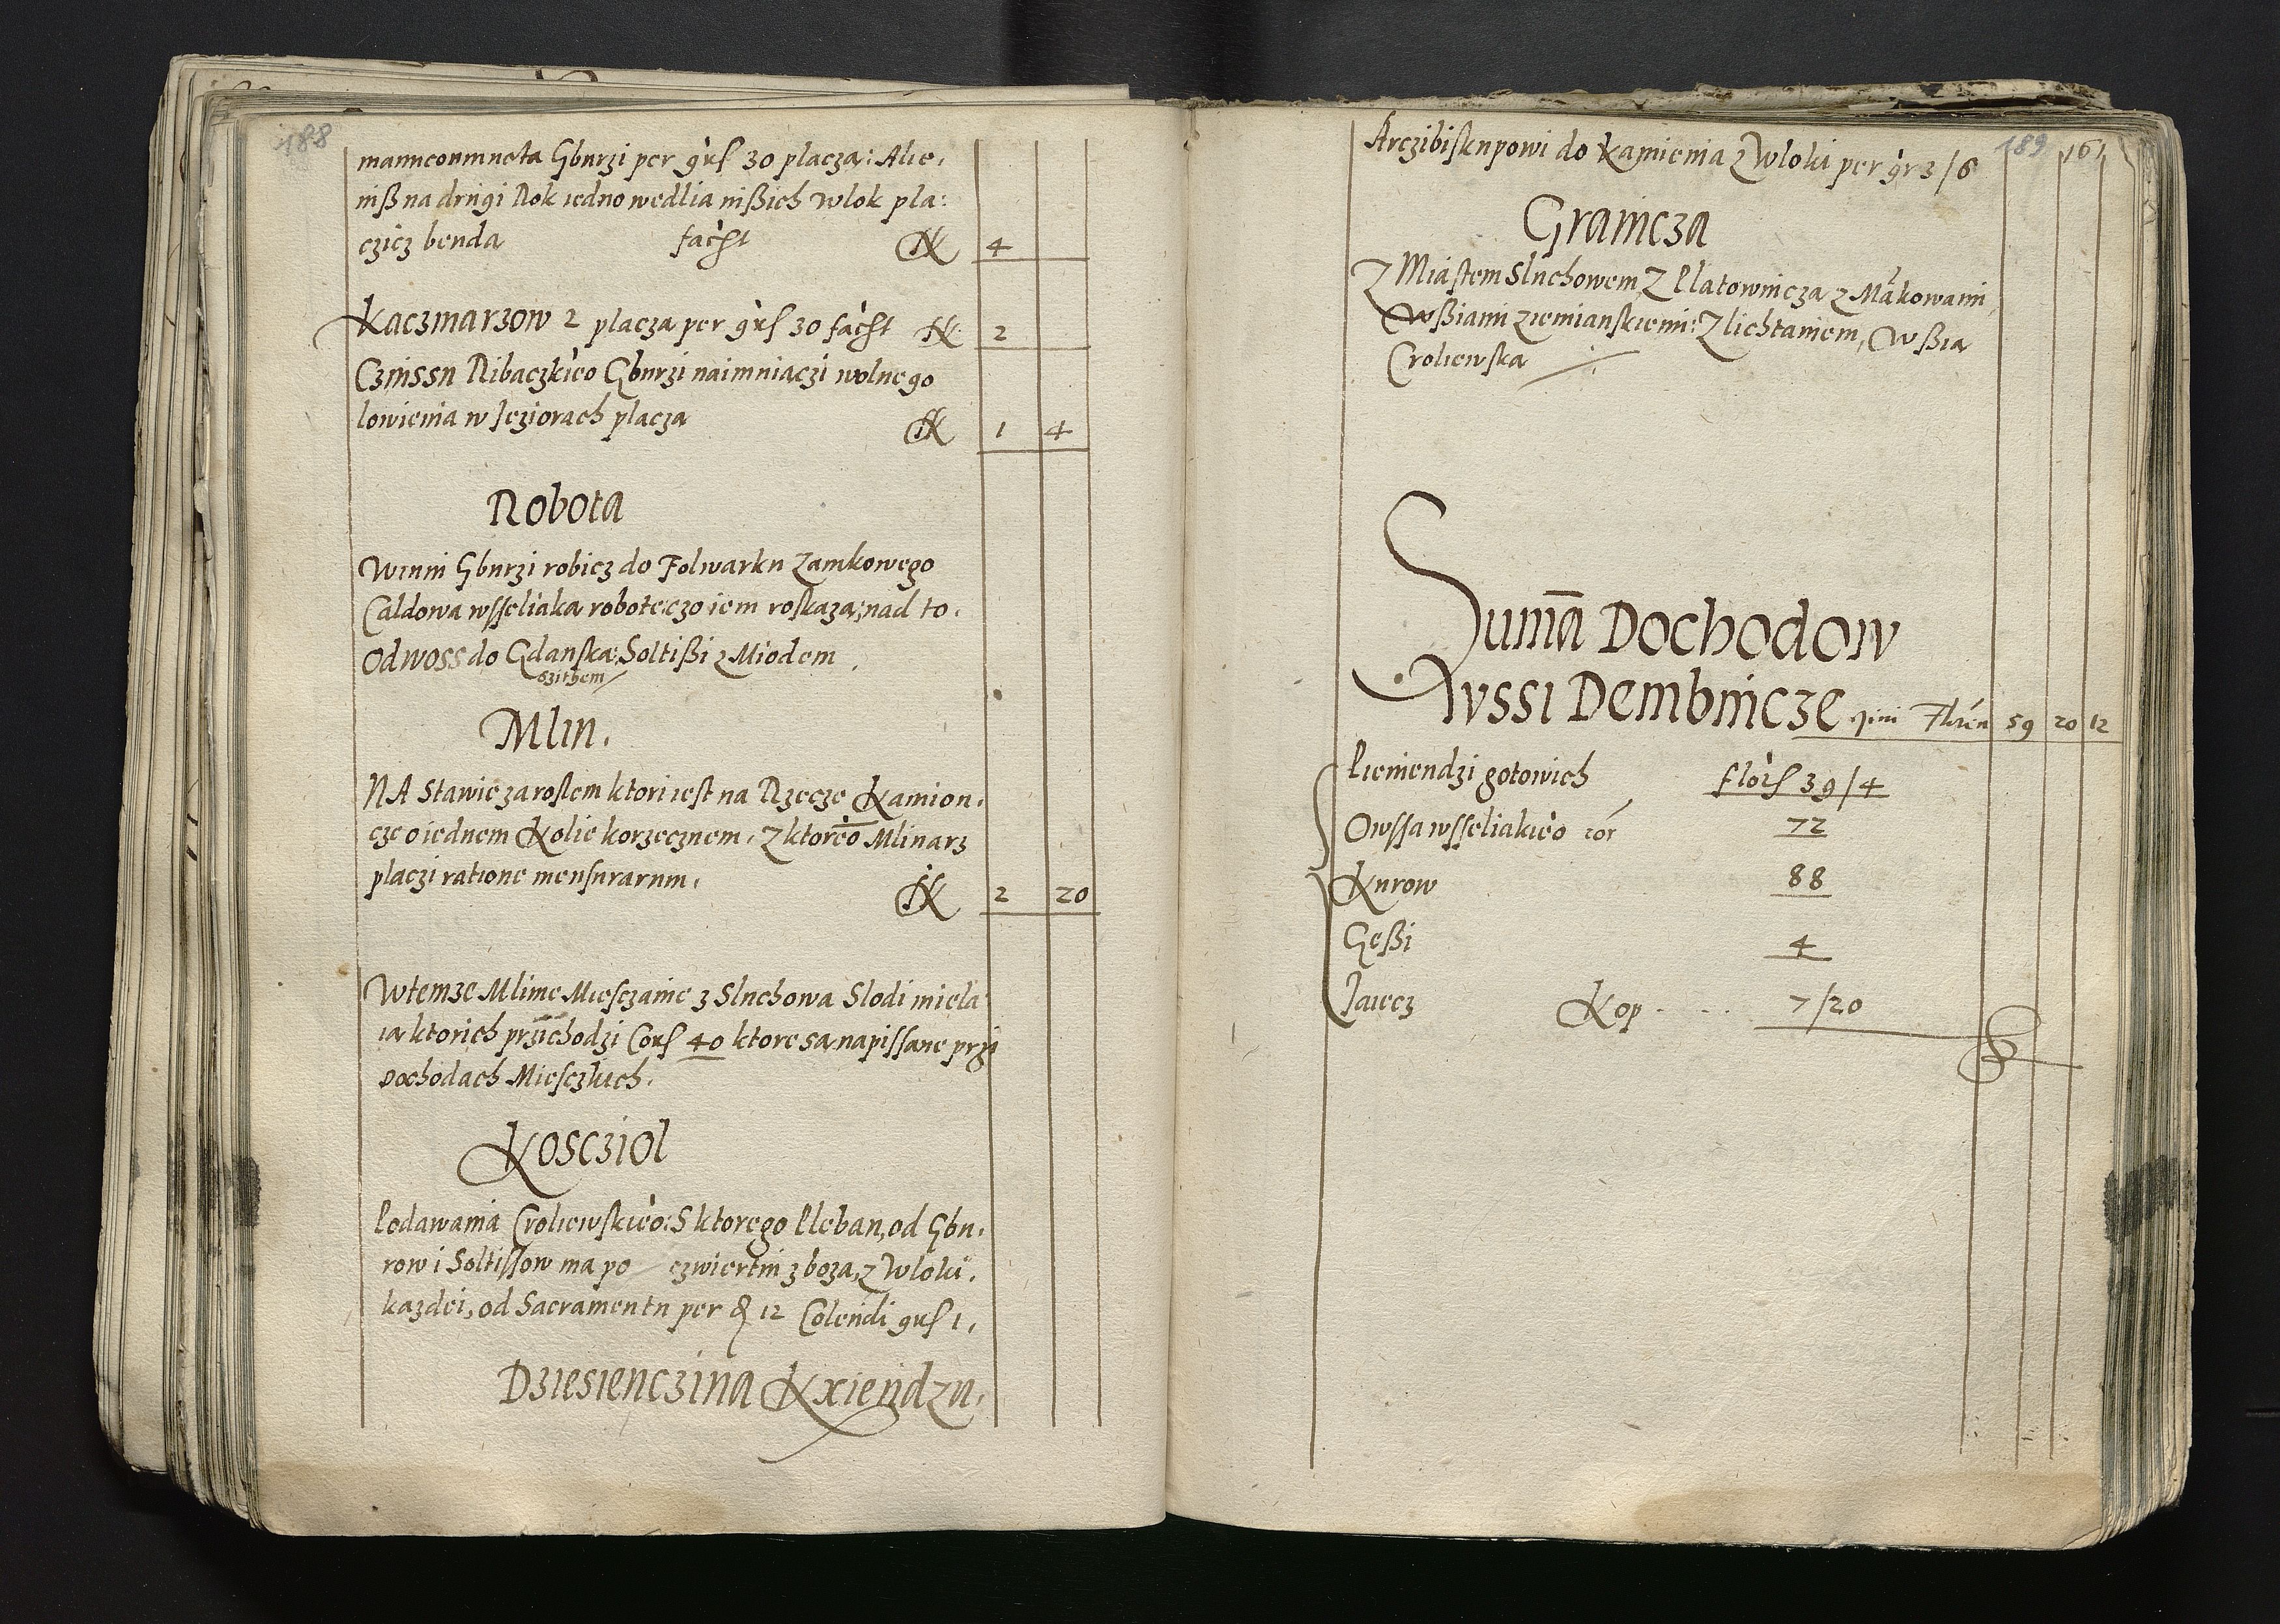 188
Gburzi per grß 30 placza: Alie,
niß na drugi Rok iedno wedlia nißich wlok pla:
czicz benda facht 4
Kaczmarzow 2 placza per grß 30 facht 2
Czinssu Ribaczkieo Gburzi naimniaczi wolnego
lowienia w Jeziorach placza 1 4
Robota
Winni Gburzi robicz do Folwarku Zamkowego
Caldowa wsseliaka robote czo iem roskaza; nad to.
Odwoss do Gdanska; Soltißi z Miodem
czithem
Mlin.
NA Stawie zaroslem ktori iest na Rzecze Kamion,
cze o iednem Kolie korzecznem, Z ktoreo Mlinarz
placzi ratione mensurarum, 2 20
W temze Mlinie Miesczanie z Sluchowa Slodi miela
ia ktorich przichodzi Corß 40 ktore sa napissane przi
Dochodach Miesczkich.
Kosczıol
Podawania Croliewskieo: S ktorego Pleban, od Gbu,
row i Soltissow ma po czwiertni zboza, z Wloki,
kazdei, od Sacramentu per 12 Colendi grß 1,
Dziesienczina Kxiendzu,
189
161
Arczibiskupowi do Kamienia z Wloki per gr 3/6
Granicza
Z Miastem Sluchowem, Z Platownicza z Makowami
Wßiami ziemianskiemi: Z lichtaniem, Wßia
Croliewska
Suma Dochodow
Wssi Dembnicze 59 20 12
Pieniendzi gotowich florß 39/4
Owssa wsseliakieo cor 72
Kurow 88
Geßi 4
Jaiecz Kop 7/20